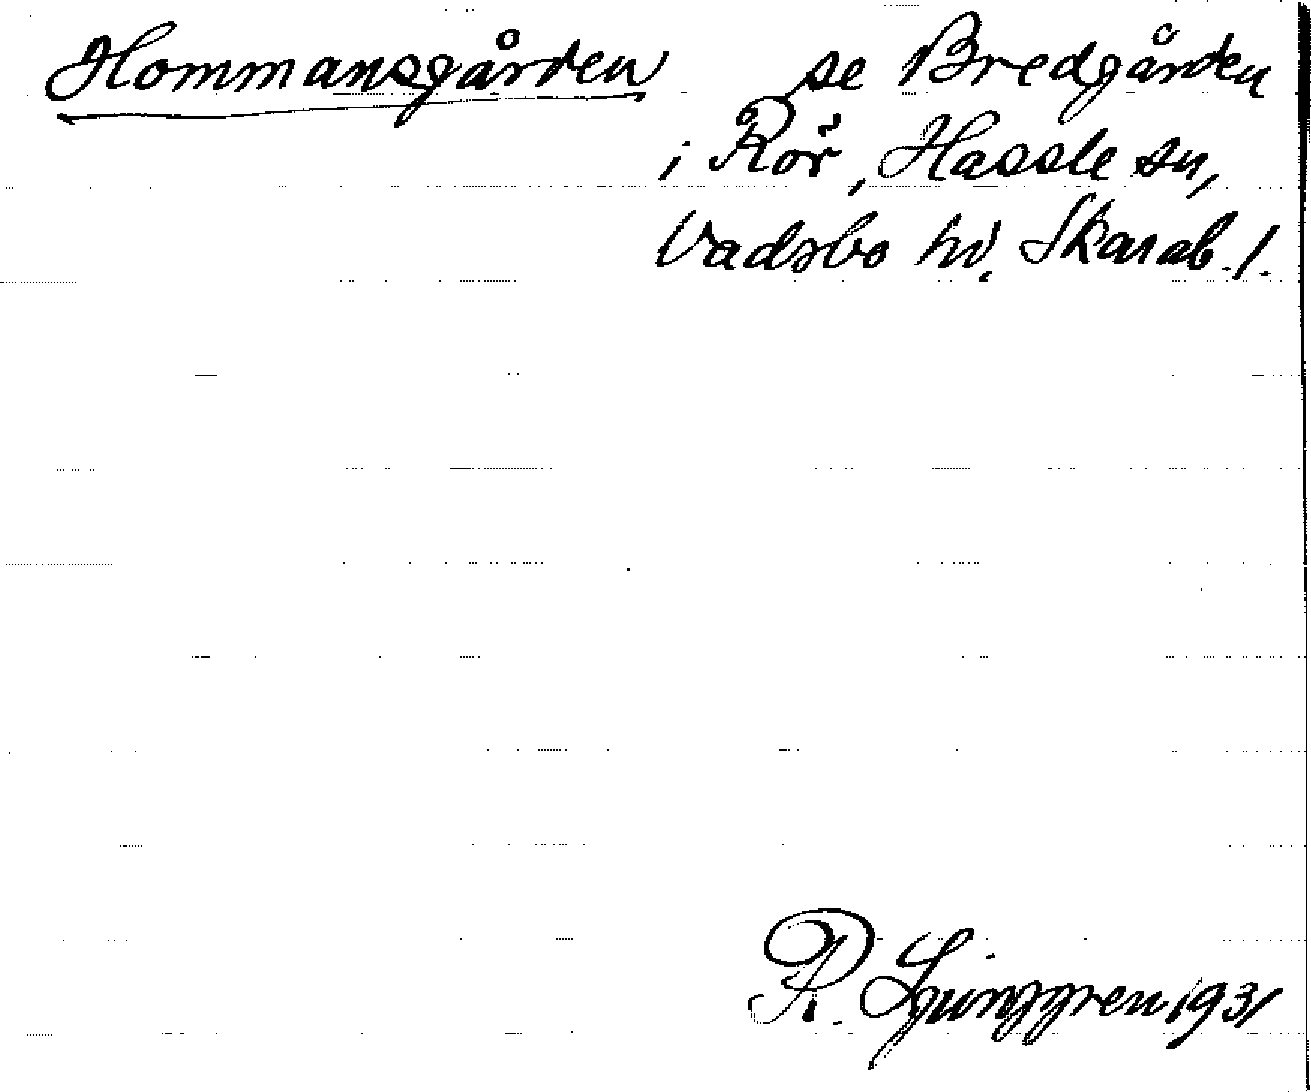 Hommansgården se Bredgården
i Rör, Hassle sn,
Vadsbo hd, Skarab. l.
R. Ljunggren 1931